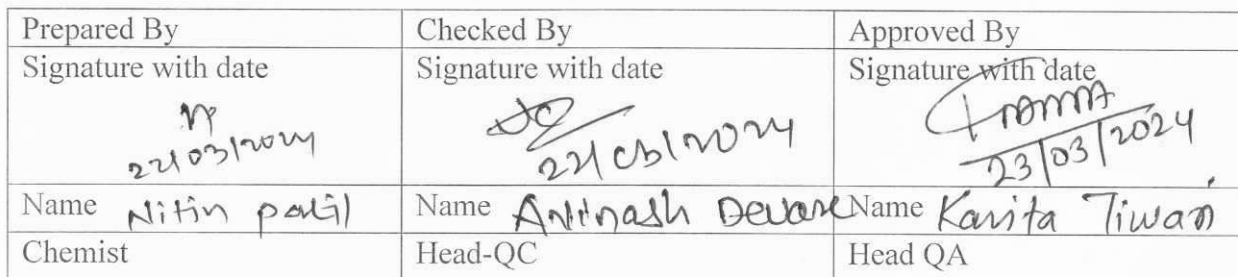 Prepared By Checked By Approved By
Signature with date Signature with date Signature with date
22/03/2024 22/03/2024 23/03/2024
Name Nitin patil Name Avinash Deware Name Kavita Tiwari
Chemist Head-QC Head QA